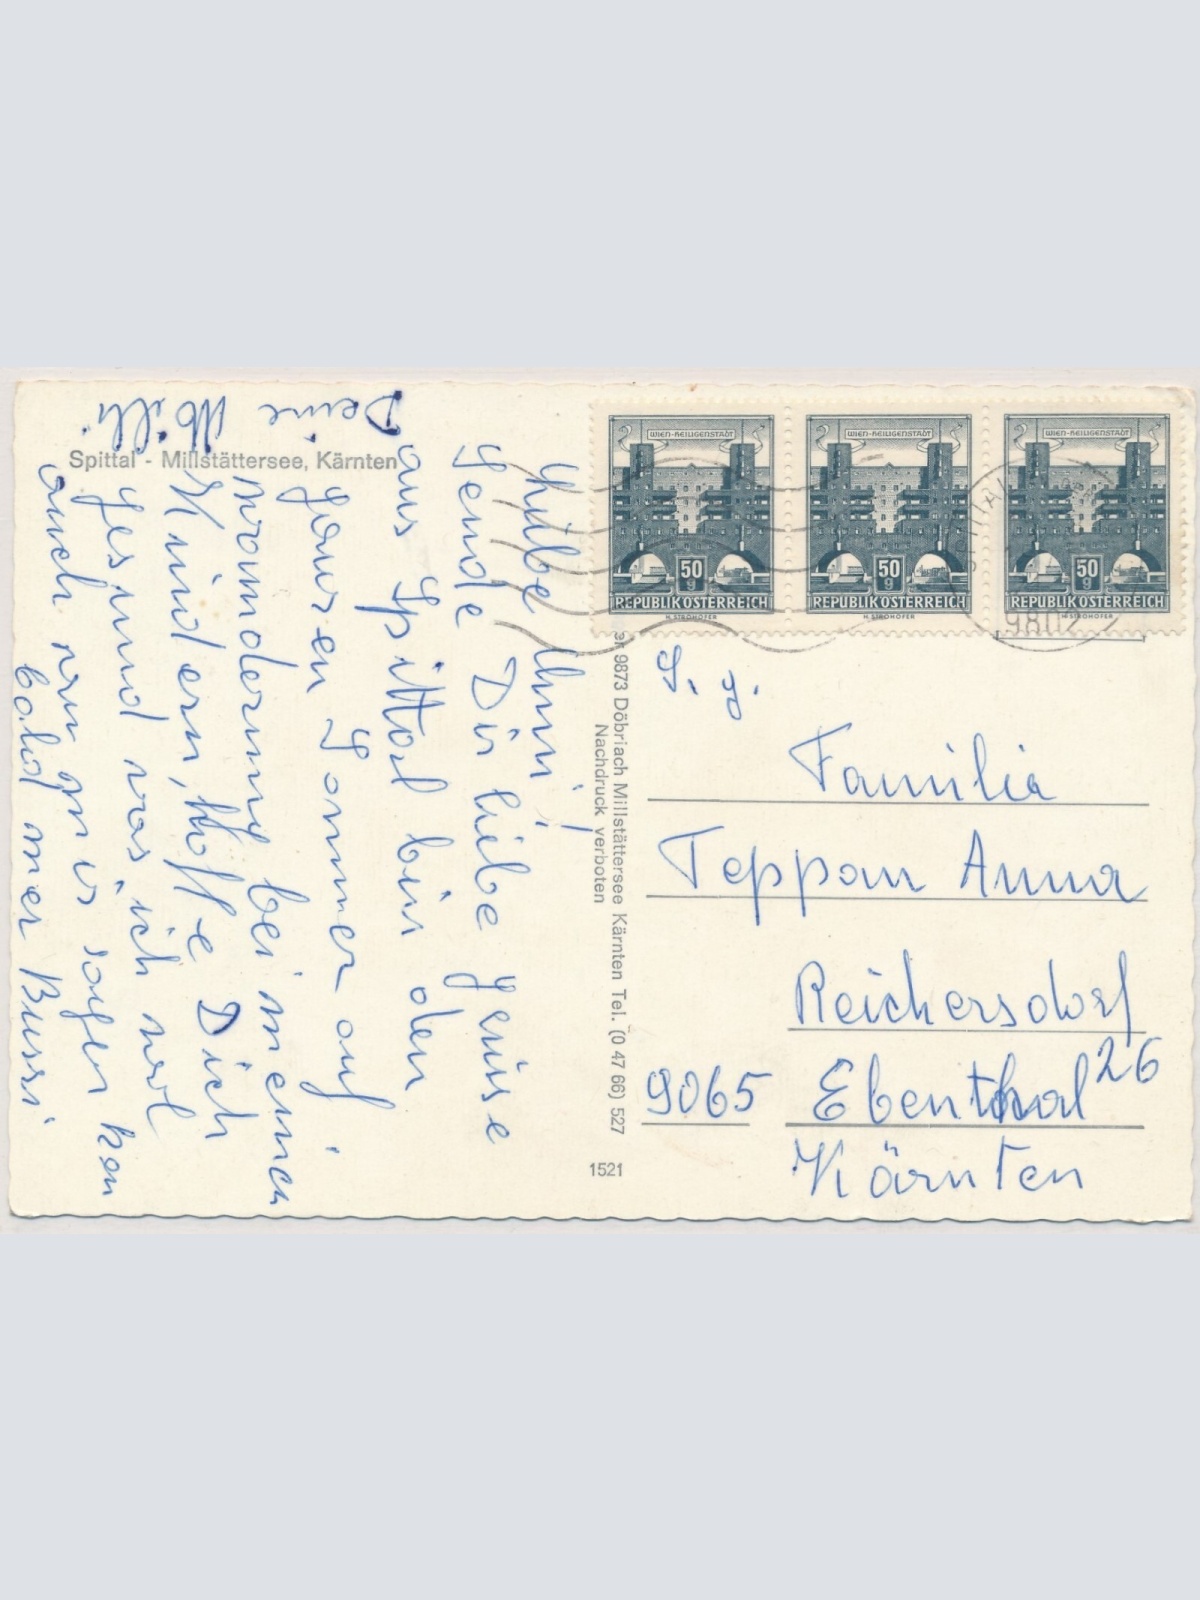 Spittal - Millstättersee, Kärnten
Liebe Anni!
Sende Dir liebe Grüsse
aus Spittal bin den
ganzen Sommer auf
bei meinen
Kindern, Hoffe Dich
gesund was ich
auch von mir sagen kan
bald mer Bussi
Deine
Milli
9873 Döbriach Millstättersee Kärnten Tel. (0 47 66) 527
Nachdruck verboten
1521
WIEN-HEILIGENSTADT
50
g
REPUBLIK ÖSTERREICH
H. STROHOFER
WIEN-HEILIGENSTADT
50
g
REPUBLIK ÖSTERREICH
H. STROHOFER
WIEN-HEILIGENSTADT
50
g
REPUBLIK ÖSTERREICH
H. STROHOFER
9802
Familie
Teppan Anna
Reichersdorf
26
9065 Ebenthal
Kärnten